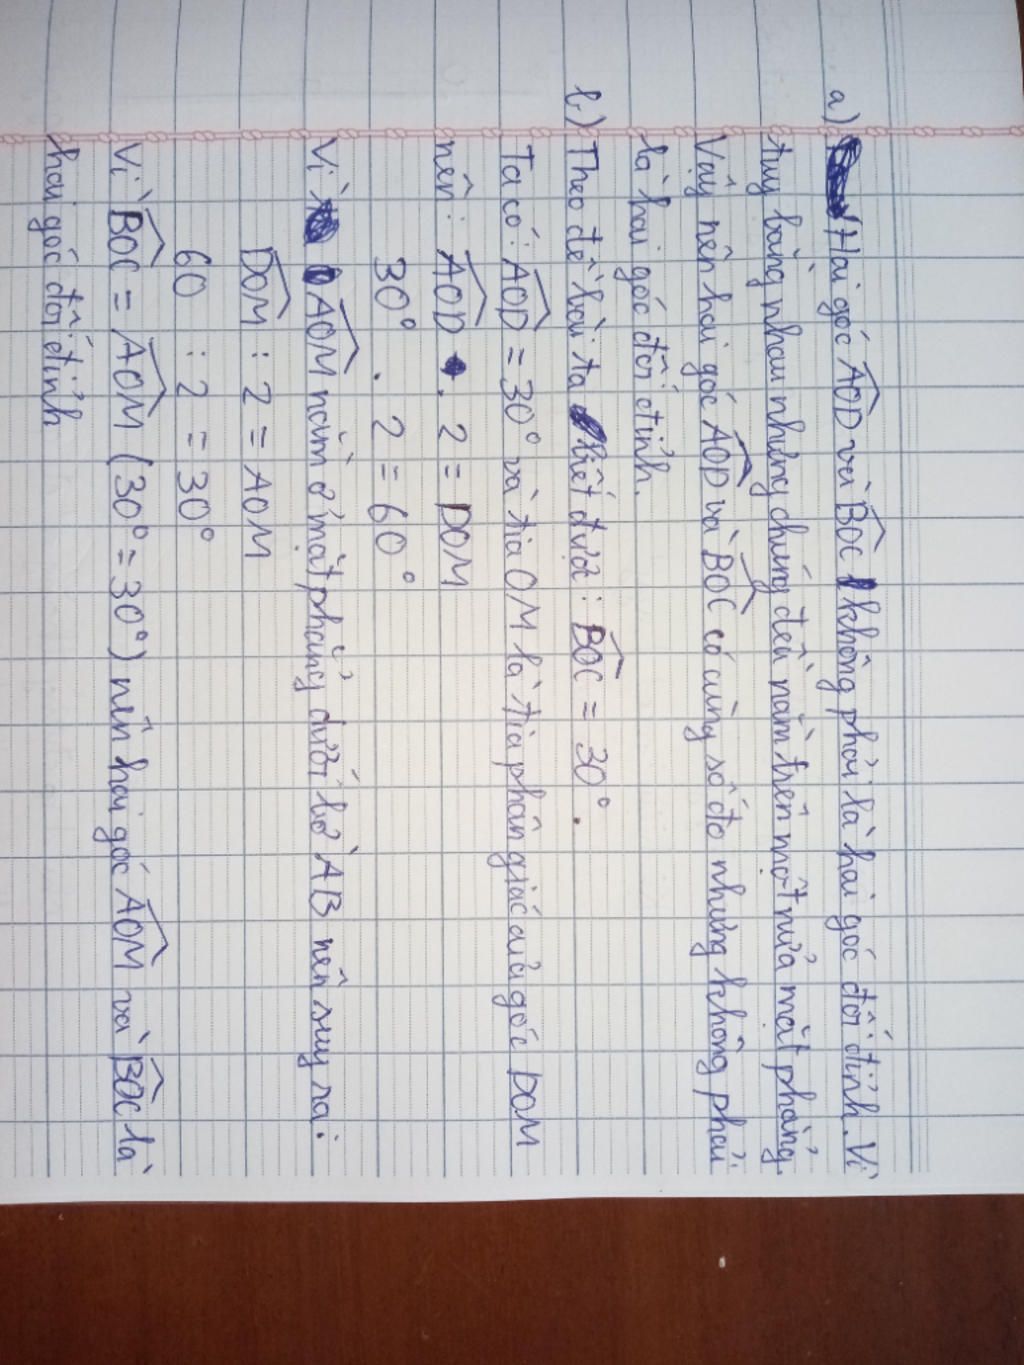 a) Hai góc AOD và BOC không phải là hai góc đối đỉnh. Vì
tuy bằng nhau nhưng chúng đều nằm trên một nửa mặt phẳng.
Vậy nên hai góc AOD và BOC có cùng số đo nhưng không phải
là hai góc đối đỉnh.
b) Theo đề bài ta biết được: BOC = 30°.
Ta có: AOD = 30° và tia OM là tia phân giác của góc DOM
nên: AOD . 2 = DOM
30° . 2 = 60°
Vì AOM nằm ở mặt phẳng dưới bờ AB nên suy ra:
DOM : 2 = AOM
60 : 2 = 30°
Vì BOC = AOM (30° = 30°) nên hai góc AOM và BOC là
hai góc đối đỉnh